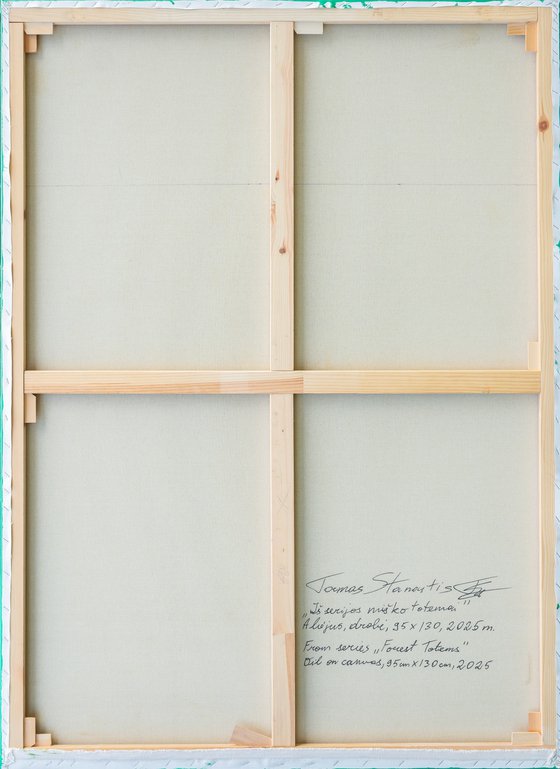 Tomas Stanaitis
„Iš serijos miško totemai"
Aliejus, drobė, 95 x 130, 2025 m.
From series „Forest Totems"
Oil on canvas, 95cm x 130cm, 2025